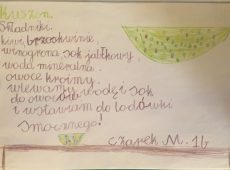 Kruszon.
Składniki:
kiwi, brzoskwinie,
winogrona, sok jabłkowy,
woda mineralna.
owoce kroimy,
wlewamy wodę i sok
do owoców
i wstawiam do lodówki
Smacznego!
Czarek M. 1b